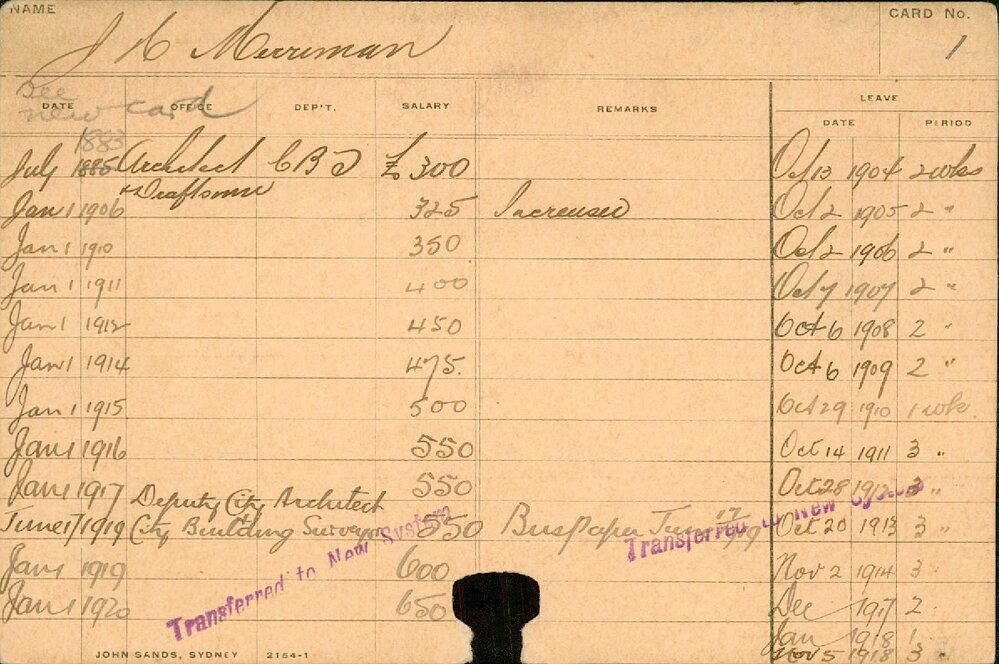 NAME
CARD No.
J C Merriman
1
See new card
DATE OFFICE DEP'T. SALARY REMARKS LEAVE
DATE PERIOD
1883
July 1885 Architect C B S £300 Oct 13 1904 2 wks
& Draftsman
Jan 1 1906 325 Increased Oct 2 1905 2 "
Jan 1 1910 350 Oct 2 1906 2 "
Jan 1 1911 400 Oct 7 1907 2 "
Jan 1 1912 450 Oct 6 1908 2 "
Jan 1 1914 475. Oct 6 1909 2 "
Jan 1 1915 500 Oct 29 1910 1 wk.
Jan 1 1916 550 Oct 14 1911 3 "
Jan 1 1917 550 Oct 28 1912 3 "
Deputy City Architect
June 17/1919 City Building Surveyor 550 Bus Paper June 17/19 Oct 20 1913 3 "
Transferred to New System
Transferred to New System
Jan 1 1919 600 Nov 2 1914 3 "
Jan 1 1920 650 Dec 1917 2
Jan 1918 1
Nov 5 1918 3 "
JOHN SANDS, SYDNEY 2154-1